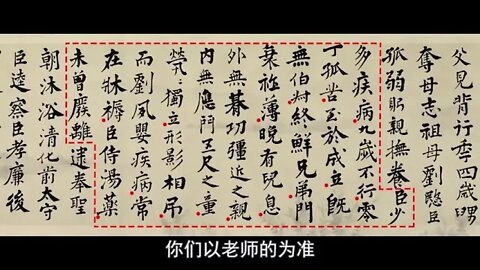 父見背行秊四歲舅
奪母志祖母劉愍臣
孤弱躬親撫養臣少
多疾病九歲不行零
丁孤苦至於成立既
無伯叔終鮮兄弟門
衰祚薄晚有兒息
外無朞功彊近之親
內無應門五尺之童
煢〻獨立形影相吊
而劉夙嬰疾病常
在牀褥臣侍湯藥
未曾廢離逮奉聖
朝沐浴清化前太守
臣逵察臣孝廉後
你们以老师的为准